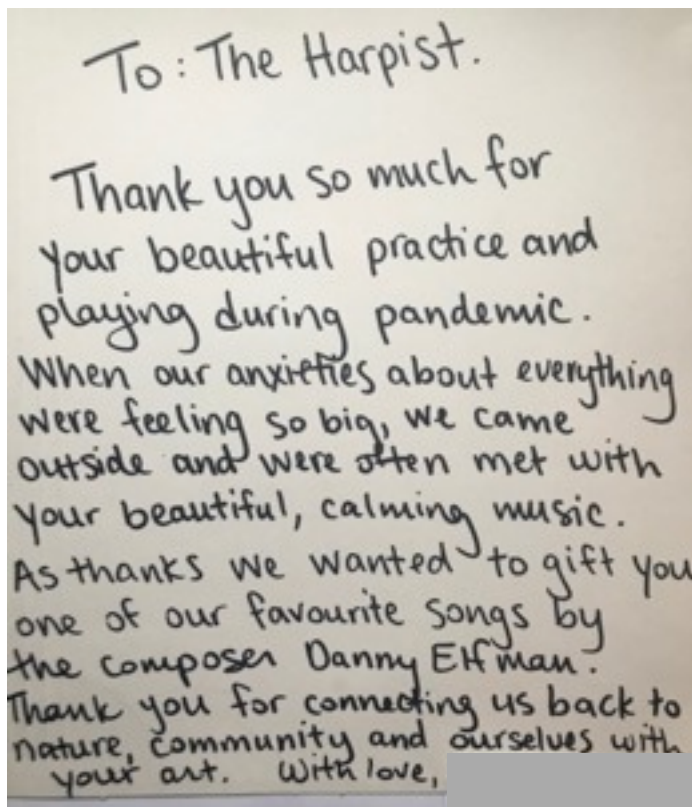 To: The Harpist.
Thank you so much for
your beautiful practice and
playing during pandemic.
When our anxieties about everything
were feeling so big, we came
outside and were often met with
your beautiful, calming music.
As thanks we wanted to gift you
one of our favourite songs by
the composer Danny Elfman.
Thank you for connecting us back to
nature, community and ourselves with
your art. With love,